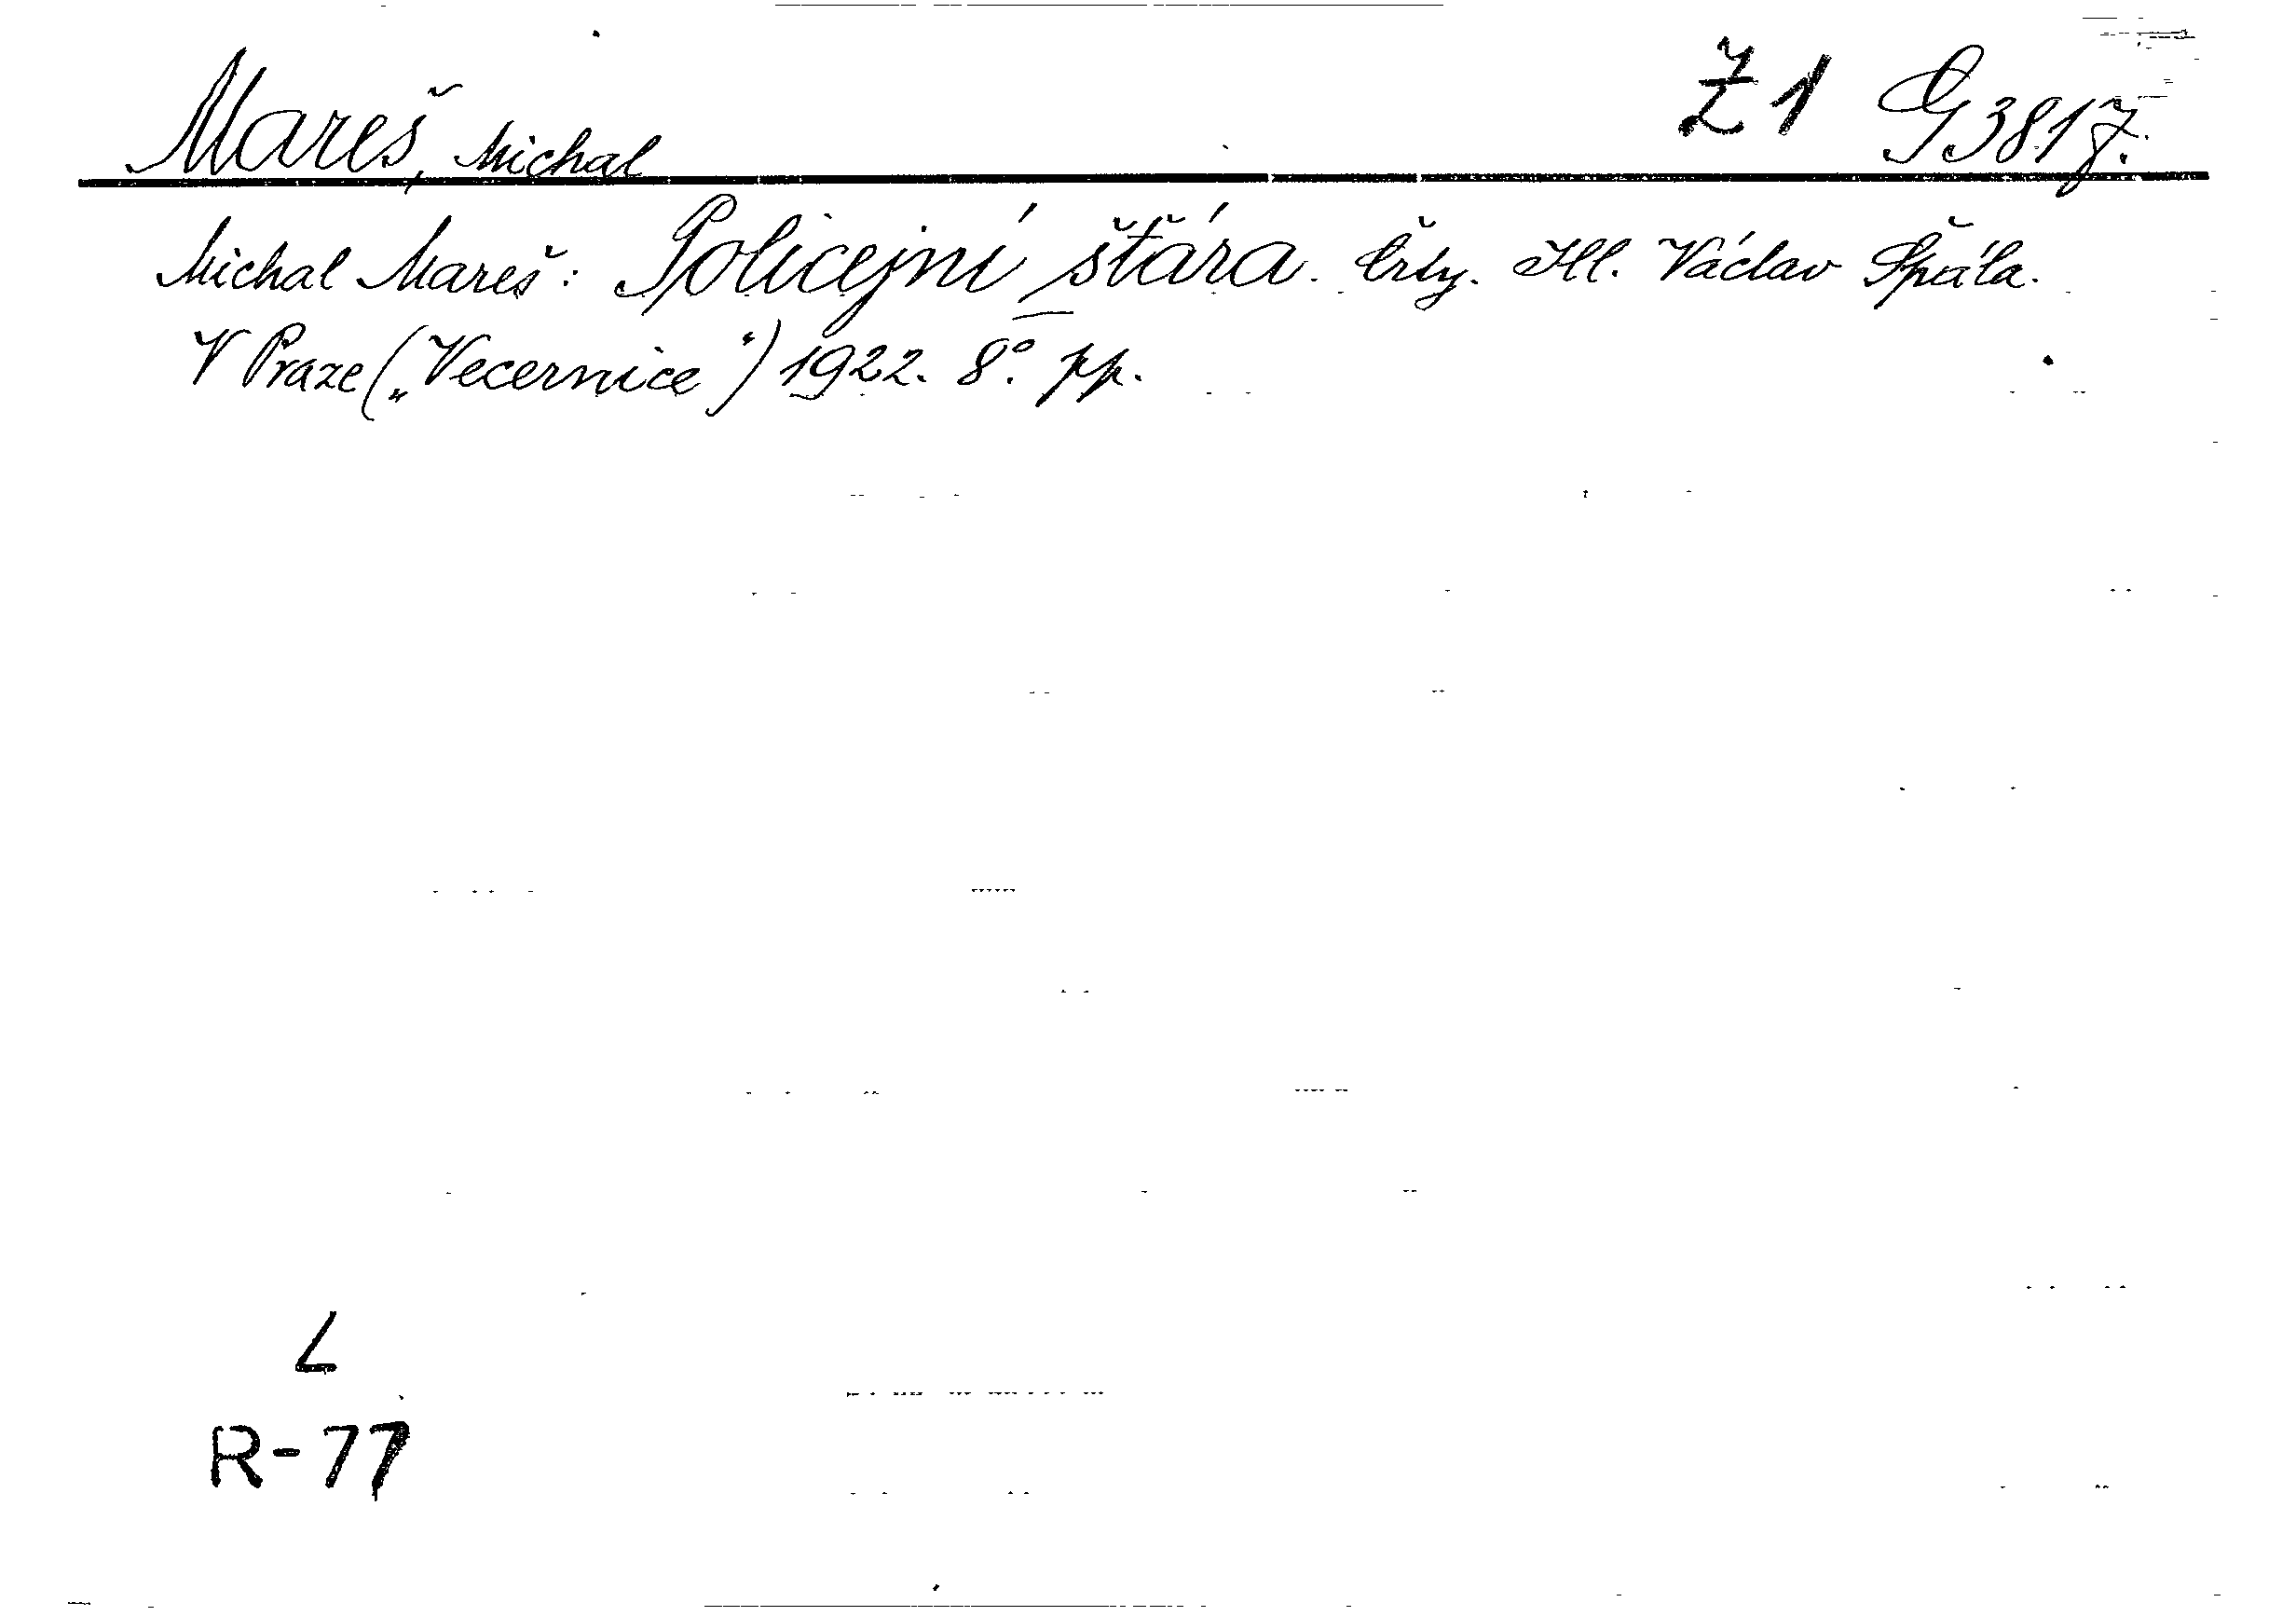 Mareš, Michal Ž 1 G 3817.
Michal Mareš: Policejní šťára. Črty. Ill. Václav Špála.
V Praze („Vecernice“) 1922. 8°. pp.
L
R-77